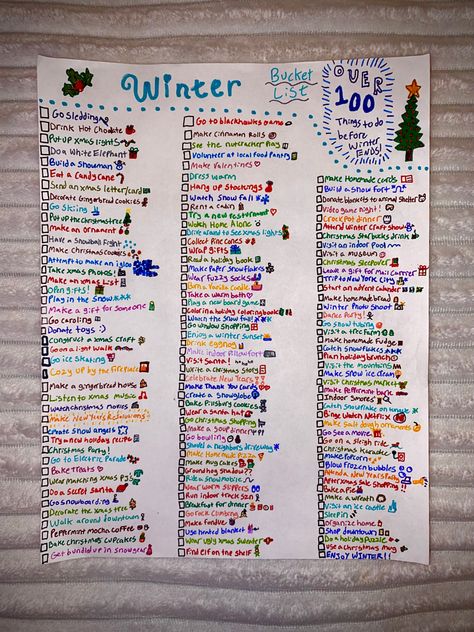 Winter
Bucket
List
OVER
100
Things to do
before
Winter
ENDS!
Go Sledding
Drink Hot Chocolate
Put up xmas lights
Do a White Elephant
Build a snowman
Eat a Candycane
Send an xmas letter/card
Decorate Gingerbread cookies
Go Skiing
Put up the christmas tree
Make an ornament
Have a Snowball Fight
Make Christmas Cookies
Attempt to make an igloo
Take xmas Photos!
Make an xmas List
Open gifts!
Play in the snow
Make a gift for someone
Go caroling
Donate toys :)
Construct a xmas craft
Go on a light walk
Go ice skating
Cozy up by the fireplace
Make a gingerbread house
Listen to xmas music
Watch christmas movies
Make New Years Resolutions
Create snow angels
Try a new holiday recipe
Christmas Party!
Go to Electric Parade
Bake Treats
Wear matching xmas PJs
Do a secret santa
Go snowboarding
Decorate the xmas tree
Walk around downtown
Peppermint mocha coffee
Bake Christmas cupcakes
Get bundled up in snowgear
Go to blackhawks game
Make cinnamon rolls
See the nutcracker play
Volunteer at local food pantry
Make valentines
Dress warm
Hang up stockings
Watch snow fall
Rent a cabin
Try a new restaurant
Watch Home Alone
Drive around to see xmas lights
Collect Pine cones
Wrap Gifts
Read a holiday book
Make Paper snowflakes
Wear fuzzy socks
Burn a Vanilla candle
Take a warm bath
Play a new board game
Color in a holiday coloring book
Watch the snow fall
Go window shopping
Enjoy a winter sunset
Drink eggnog
Make indoor pillow fort
Visit Santa!
Write a christmas story
Celebrate New Years!
Make Thank You cards
Create a snowglobe
Bake Pillsbury cookies
Wear a santa hat
Go Christmas Shopping
Make a soup dinner
Go bowling
Shovel a Neighbors driveway
Make Homemade Pizza
Make mug cakes
Groundhog shadow??
Ride a snowmobile
Wear warm slippers
Run indoor track
Breakfast for dinner
Go rock climbing
Make fondue
Use heated blanket
Wear ugly xmas sweater
Find elf on the shelf
Make Homemade cards
Build a snow fort
Donate blankets to animal shelter
Video game night!
Crockpot dinner
Attend Winter craft show
Christmas Starbucks drink
Visit an indoor pool
Visit a museum
Christmas sleepover
Leave a gift for Mail Carrier
Trip to New York City
Start an advent calender
Make homemade bread
Winter Photo shoot
Dance Party!
Go snow tubing
Visit a tree farm
Make homemade fudge
Catch snowflakes
Plan holiday brunch
Visit the mountains
Make snow ice cream
Visit Christmas market
Make Peppermint bark
Indoor Smores
Catch snowflake on tongue
Binge Watch Netflix
Make salt dough ornaments
Go see a movie
Go on a sleigh ride
Christmas Karaoke
Make Popcorn
Blow Frozen bubbles
Attend a New Years Party
After xmas sale shopping!!
Bake a Pie
Make a wreath
Visit an ice castle
Sleep in
Organize home
Shop downtown
Do a holiday puzzle
Use a christmas mug
ENJOY WINTER!!